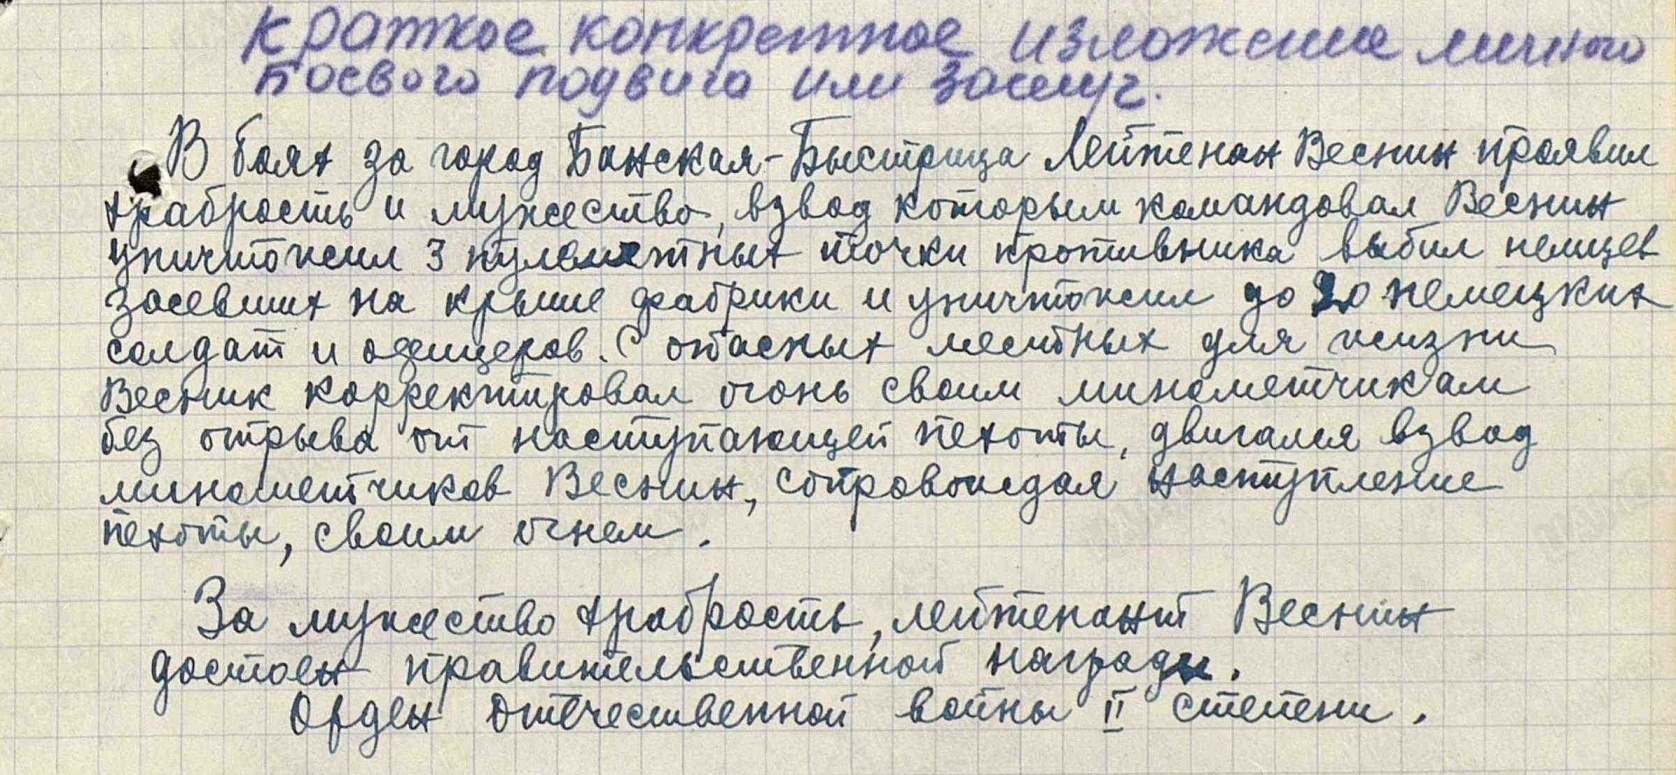 Краткое конкретное изложение личного
боевого подвига или заслуг.
В боях за город Банская-Быстрица Лейтенан Веснин проявил
храбрость и мужество, взвод которым командовал Веснин
уничтожил 3 пулеметных точки противника выбил немцев
засевших на крыше фабрики и уничтожил до 20 немецких
солдат и офицеров. С опасных местных для жизни
Весник корректировал огонь своим минометчикам
без отрыва от наступающей пехоты, двигался взвод
минометчиков Веснин, сопровождая наступление
пехоты, своим огнем.
За мужество храбрость, лейтенант Веснин
достоен правительственной награды.
Орден Отечественной войны II степени.